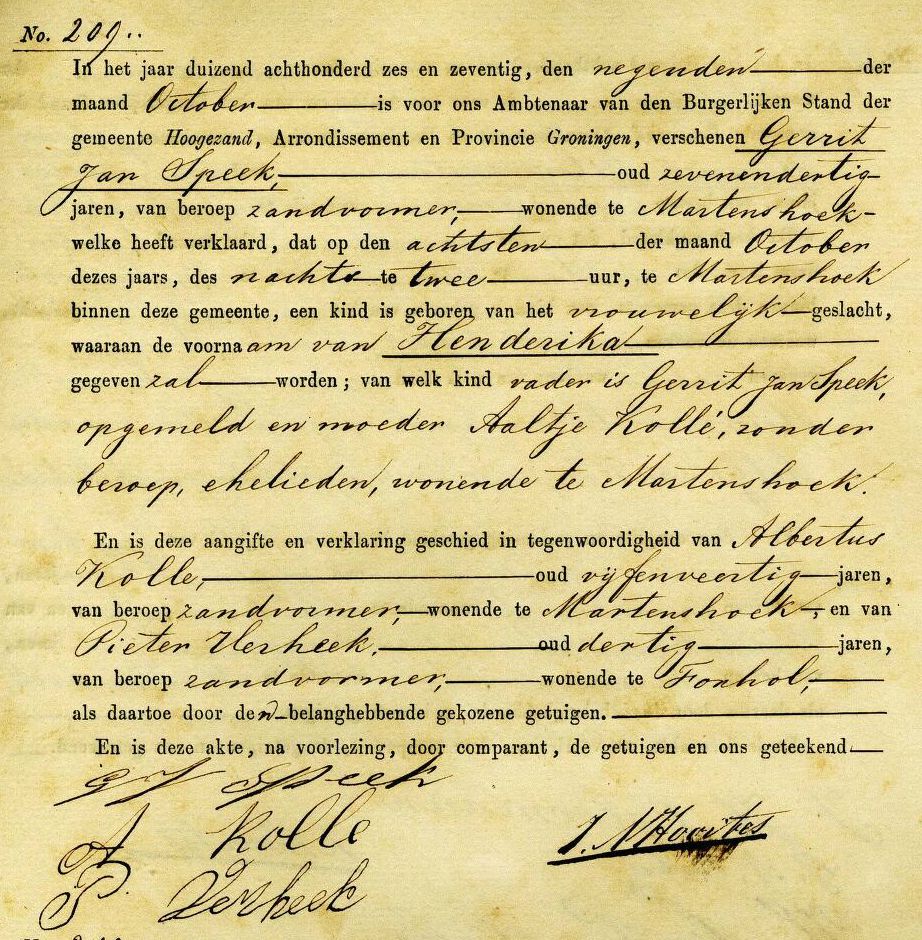 No. 209..
In het jaar duizend achthonderd zes en zeventig, den negenden der
maand October is voor ons Ambtenaar van den Burgerlijken Stand der
gemeente Hoogezand, Arrondissement en Provincie Groningen, verschenen Gerrit
Jan Speek, oud zevenendertig
jaren, van beroep zandvormer, wonende te Martenshoek
welke heeft verklaard, dat op den achtsten der maand October
dezes jaars, des nachts te twee uur, te Martenshoek
binnen deze gemeente, een kind is geboren van het vrouwelijk geslacht,
waaraan de voornaam van Henderika
gegeven zal worden; van welk kind vader is Gerrit Jan Speek,
opgemeld en moeder Aaltje Kollé, zonder
beroep, ehelieden, wonende te Martenshoek.
En is deze aangifte en verklaring geschied in tegenwoordigheid van Albertus
Kolle, oud vijfenveertig jaren,
van beroep zandvormer, wonende te Martenshoek, en van
Pieter Verheek, oud dertig jaren,
van beroep zandvormer, wonende te Foxhol,
als daartoe door den belanghebbende gekozene getuigen.
En is deze akte, na voorlezing, door comparant, de getuigen en ons geteekend
G J Speek
A Kolle
P. Verheek